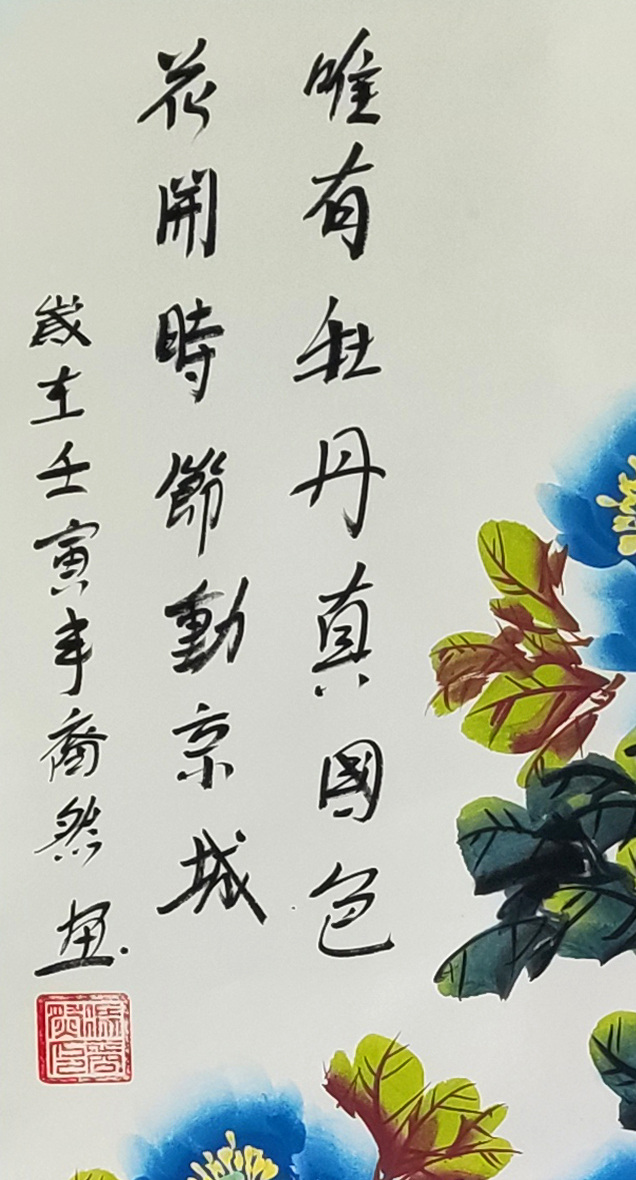 唯有牡丹真國色
花開時節動京城
歲在壬寅年裔然画